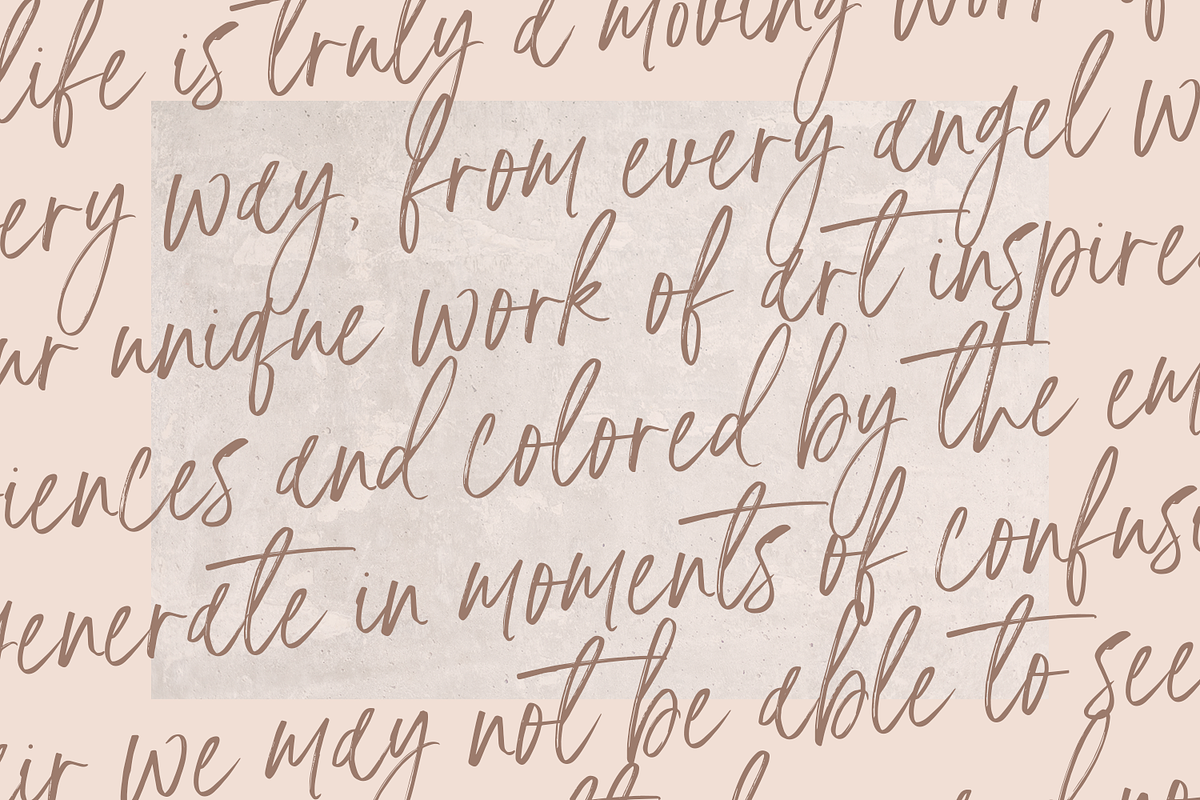 life is truly a moving work of
ery way, from every angel w
ur unique work of art inspire
iences and colored by the em
generate in moments of confusi
ir we may not be able to see